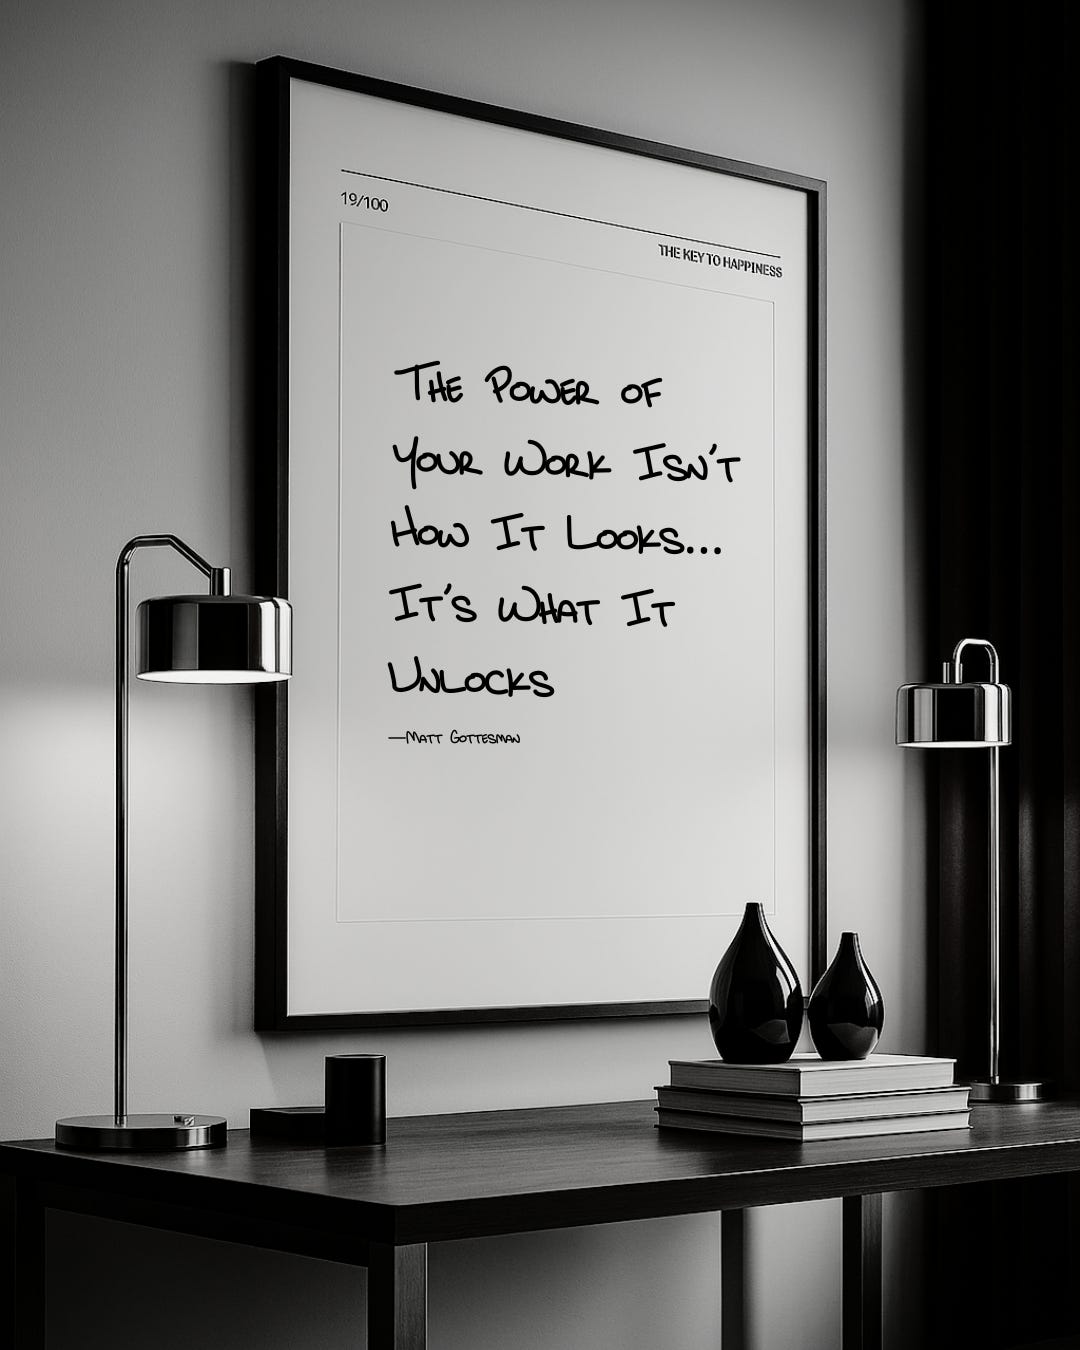 19/100
THE KEY TO HAPPINESS
The Power of
Your Work Isn't
How It Looks...
It's What It
Unlocks
—Matt Gottesman